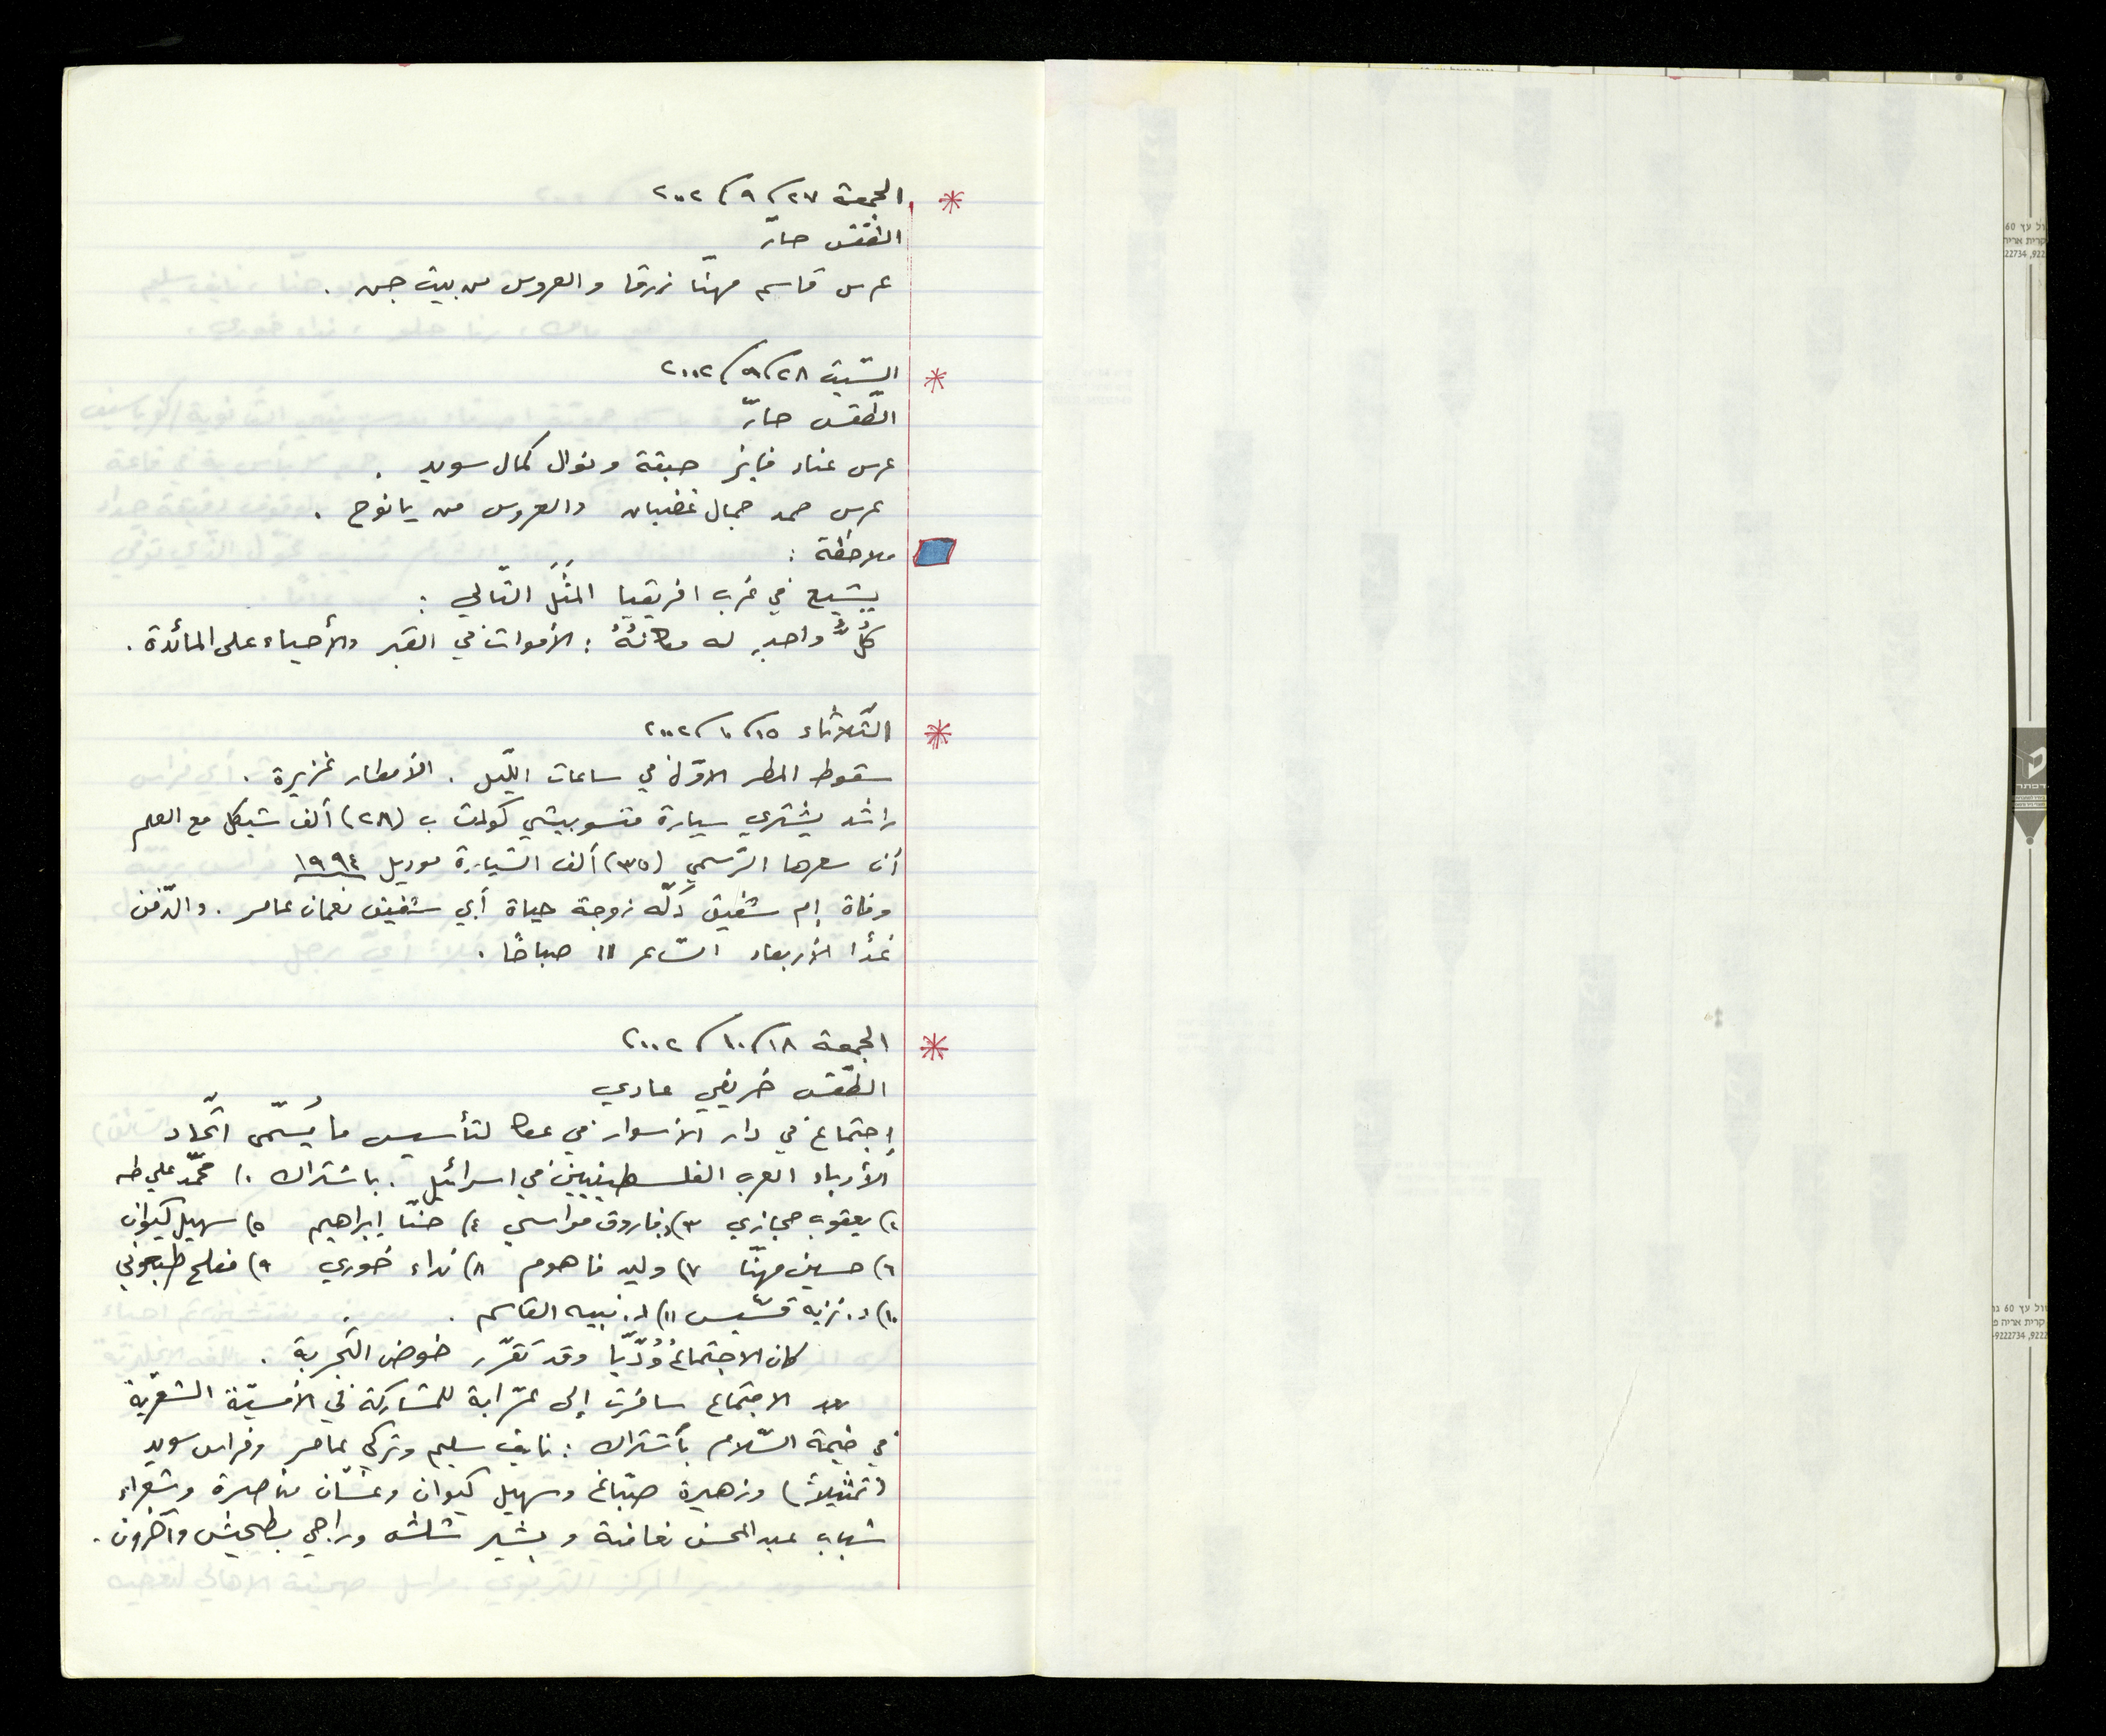 الجمعة ٢٧/٩/٢٠٠٢
الطّقس حارّ
عرس قاسم مهنّا زرقا والعروس من بيت جن .
السّبت ٢٨/٩/٢٠٠٢
الطّقس حارّ
عرس عناد فايز صبقة ونوال كمال سويد .
عرس حمد جمال غضبان والعروس من يانوح .
ملاحظة :
يشيع في غرب افريقيا المثَل التّالي :
كلُّ واحدٍ له مكانُهُ : الأموات في القبر والأحياء على المائدة .
الثّلاثاء ١٥/١٠/٢٠٠٢
سقوط المطر الاوّل في ساعات اللّيل . الأمطار غزيرة .
راشد يشتري سيارة متسوبيشي كولت ب (٢٨) ألف شيكل مع العلم
أن سعرها الرّسمي (٣٥) ألف السّيارة موديل ١٩٩٤
وفاة إم شفيق دلّه زوجة حياة أبي شفيق نعمان عامر . والدّفن
غدًا الأربعاء السّاعة ١١ صباحًا .
الجمعة ١٨/١٠/٢٠٠٢
الطّقس خريفي عادي
إجتماع في دار الأسوار في عكا لتأسيس ما يُسمّى اتّحاد
الأدباء العرب الفلسطينيين في اسرائيل . باشتراك ١) محمّد علي طه
٢) يعقوب حجازي ٣) د. فاروق مواسي ٤) حنّا إبراهيم ٥) سهيل كيوان
٦) حسين مهنّا ٧) وليد فاهوم ٨) نداء خوري ٩) مفلح طبعوني
١٠) د. نزيه قسّيس ١١) د. نبيه القاسم .
كان الاجتماعُ وُدّيّا وقد تقرّر خوض التّجربة .
بعد الاجتماع سافرت إلى عرّابة للمشاركة في الأمسيّة الشّعريّة
في خيمة السّلام بأشتراك : نايف سليم وتركي عامر وفراس سويد
(تمثيلاً) وزهيرة صبّاغ وسهيل كيوان وغسّان مناصرة وشعراء
شباب عبد المحسن نعامنة وبشير شلش وراجي بطحيش وآخرون .